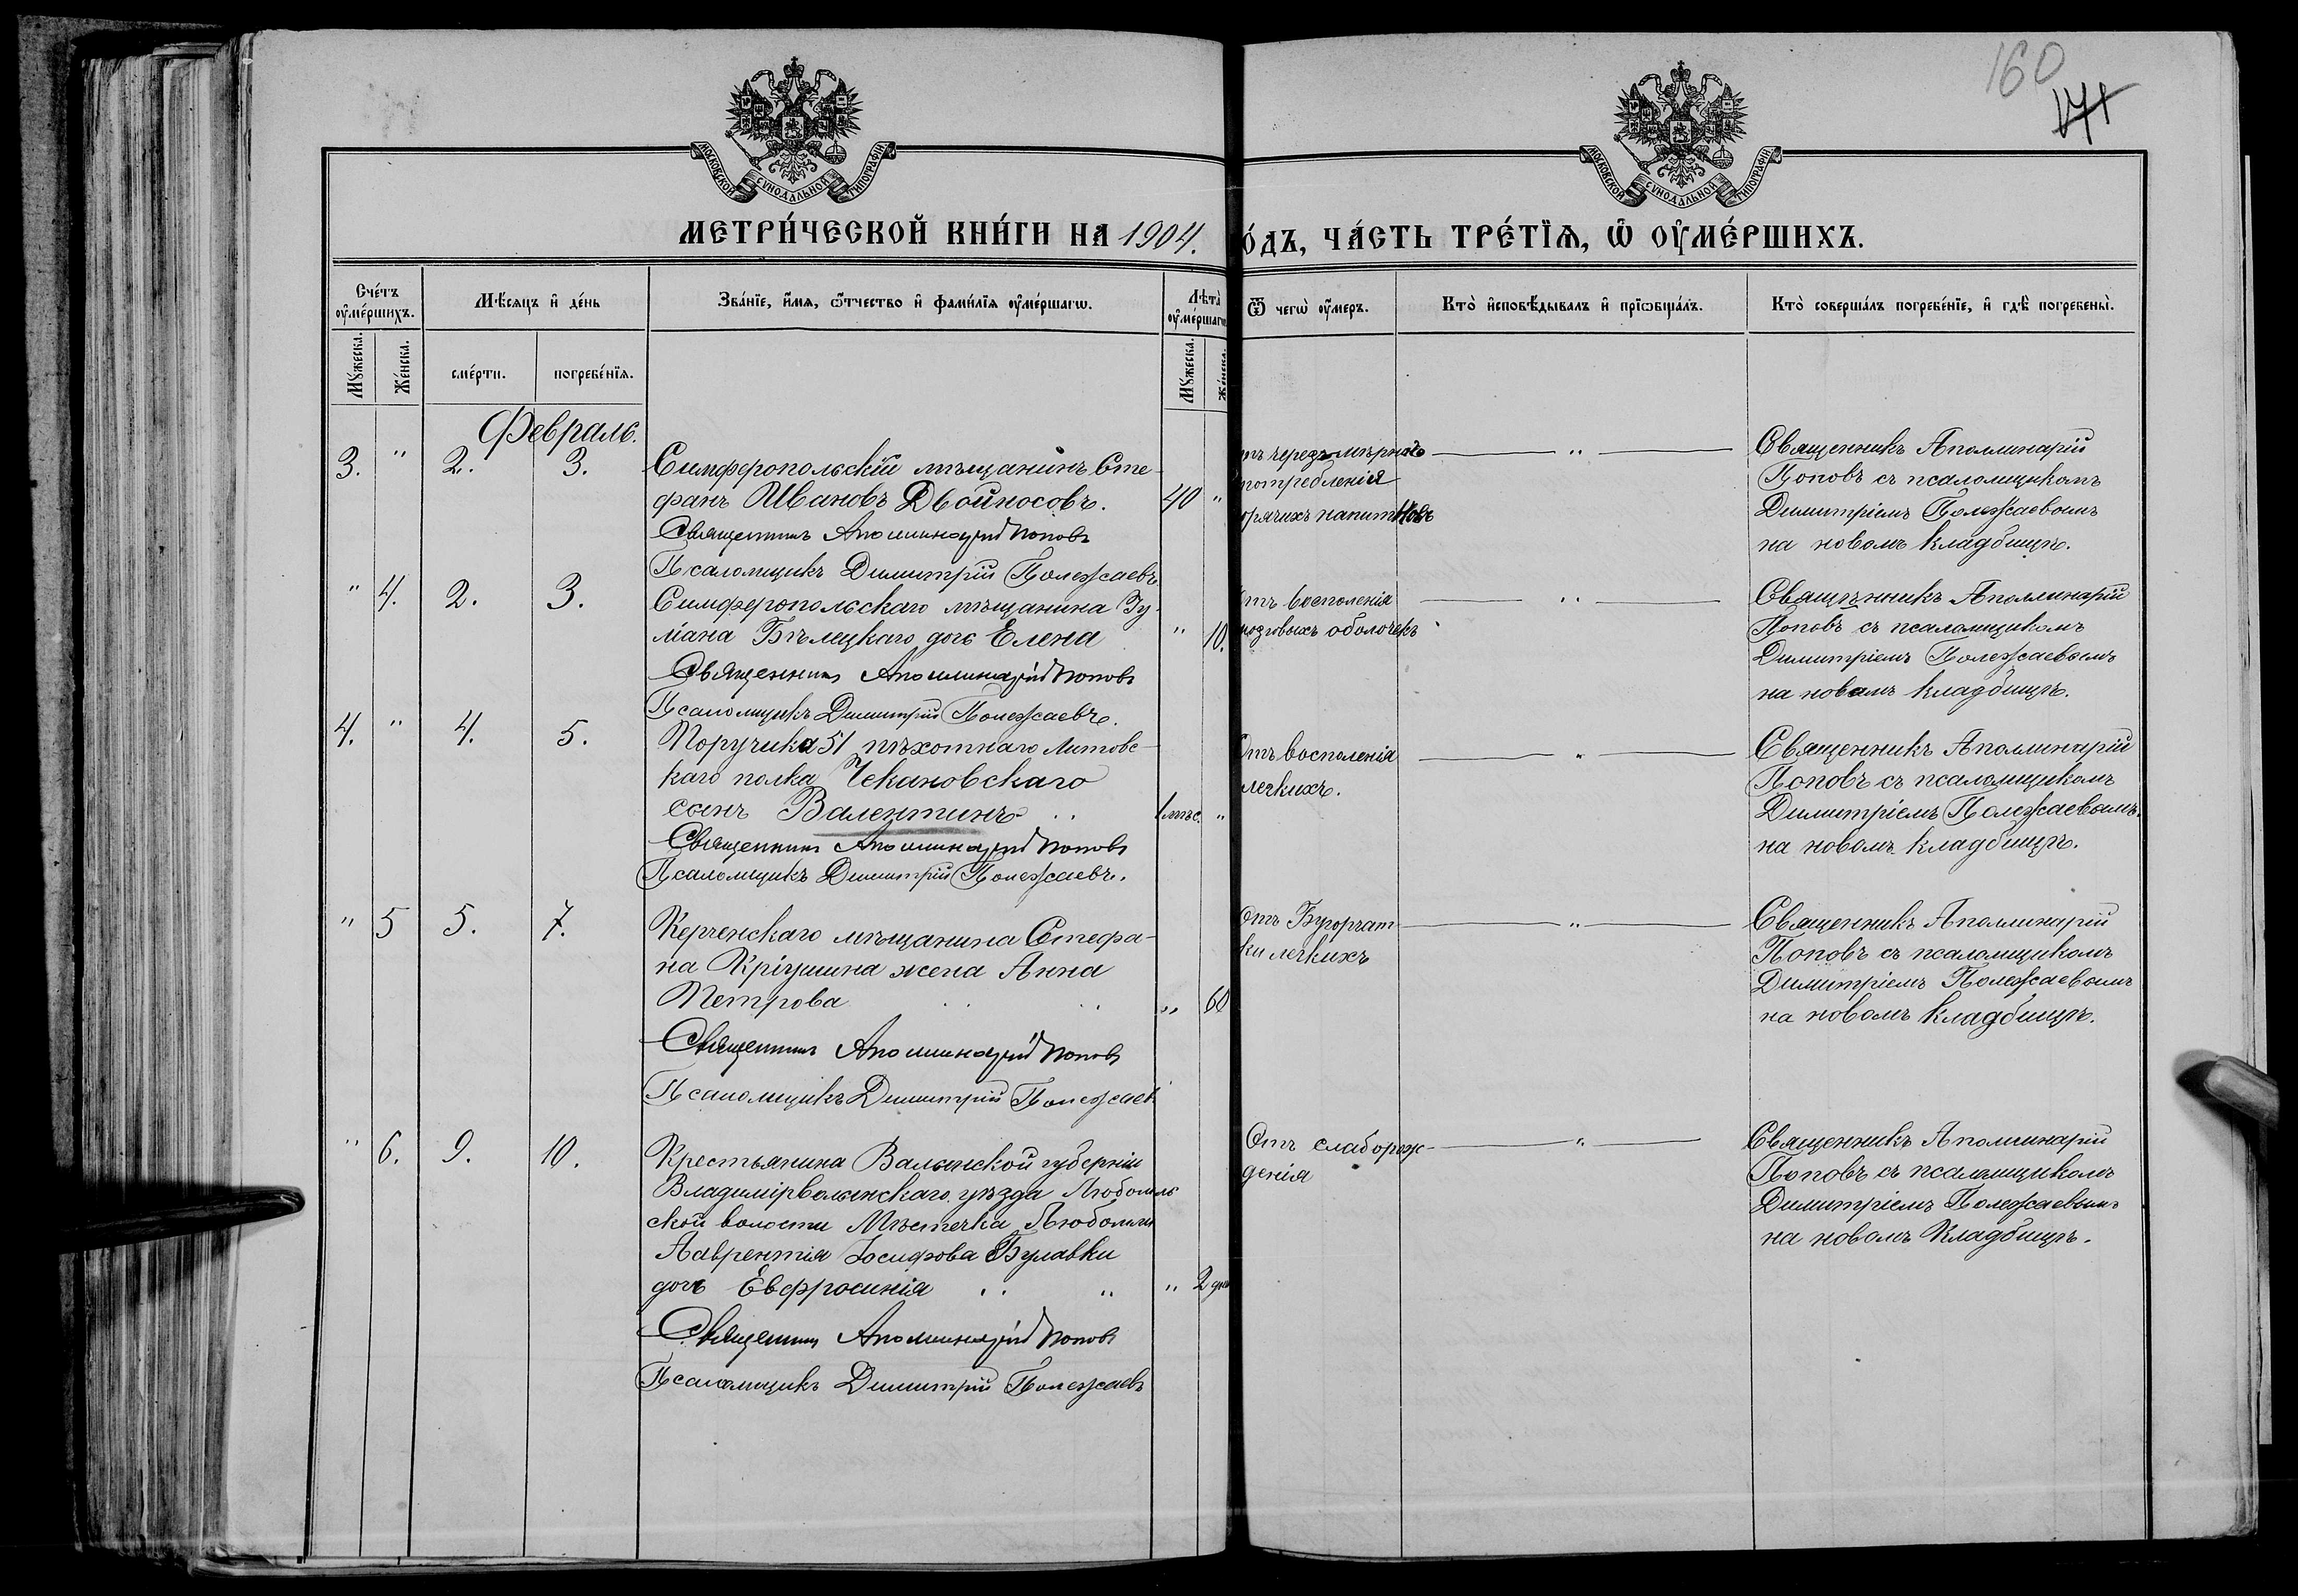 160
171
МОСКОВСКОЙ СѴНОДАЛЬНОЙ ТИПОГРАФІИ
МОСКОВСКОЙ СѴНОДАЛЬНОЙ ТИПОГРАФІИ
МЕТРИ́ЧЕСКОЙ КНИ́ГИ НА 1904. О́ДЪ, ЧА́СТЬ ТРЕ́ТІѦ, Ѡ ОУ҆МЕ́РШИХЪ.
Сче́тъ оу҆ме́ршихъ.
Мѣ́сяцъ и҆ де́нь
Зва́нїе, и҆́мя, ѻ҆́тчество и҆ фамі́лїя оу҆ме́ршагѡ.
Лѣта̀ оу҆ме́ршагѡ
Ѿ чегѡ̀ оу҆́меръ.
Кто̀ и҆сповѣ́дывалъ и҆ прїѡбща́лъ.
Кто̀ соверша́лъ погребе́нїе, и҆ гдѣ̀ погребены̀.
Мꙋ́жеска.
Же́нска.
сме́рти.
погребе́нїя.
Мꙋ́жеска.
Же́нска.
Февраль.
3. " 2. 3. Симферопольскій мѣщанинъ Сте-
фанъ Ивановъ Двойносовъ. 40 "
Священникъ Аполлинарій Поповъ
Псаломщикъ Димитрій Полежаевъ
тъ черезъмѣрнаго
потребленія
орячихъ напитковъ
"
Священникъ Аполлинарій
Поповъ съ псаломщикомъ
Димитріемъ Полежаевымъ
на новомъ кладбищѣ.
" 4. 2. 3. Симферопольскаго мѣщанина Іу-
ліана Бѣлецкаго дочь Елена " 10.
Священникъ Аполлинарій Поповъ
Псаломщикъ Димитрій Полежаевъ.
тъ восполенія
мозговыхъ оболочекъ
"
Священникъ Аполлинарій
Поповъ съ псаломщикомъ
Димитріемъ Полежаевымъ
на новомъ кладбищѣ.
4. " 4. 5. Поручика 51 пѣхотнаго Литовс-
каго полка Чекановскаго
сынъ Валентинъ 1 мѣс. "
Священникъ Аполлинарій Поповъ
Псаломщикъ Димитрій Полежаевъ.
Отъ восполенія
легкихъ.
"
Священникъ Аполлинарій
Поповъ съ псаломщикомъ
Димитріемъ Полежаевымъ.
на новомъ кладбищѣ.
" 5 5. 7. Керченскаго мѣщанина Стефа-
на Кріушина жена Анна
Петрова " 60
Священникъ Аполлинарій Поповъ
Псаломщикъ Димитрій Полежаев
Отъ Бугорчат
ки легкихъ
"
Священникъ Аполлинарій
Поповъ съ псаломщикомъ
Димитріемъ Полежаевымъ
на новомъ кладбищѣ.
" 6. 9. 10. Крестьянина Валынской губерніи
Владимірволынскаго уѣзда Любомль
ской волости Мѣстечка Любомли
Лаврентія Іосифова Булавки
дочь Евфросинія " " 2 дня
Священникъ Аполлинарій Поповъ
Псаломщикъ Димитрій Полежаевъ
Отъ слаборож-
денія
"
Священникъ Аполлинарій
Поповъ съ псаломщикомъ
Димитріемъ Полежаевымъ
на новомъ Кладбищѣ.